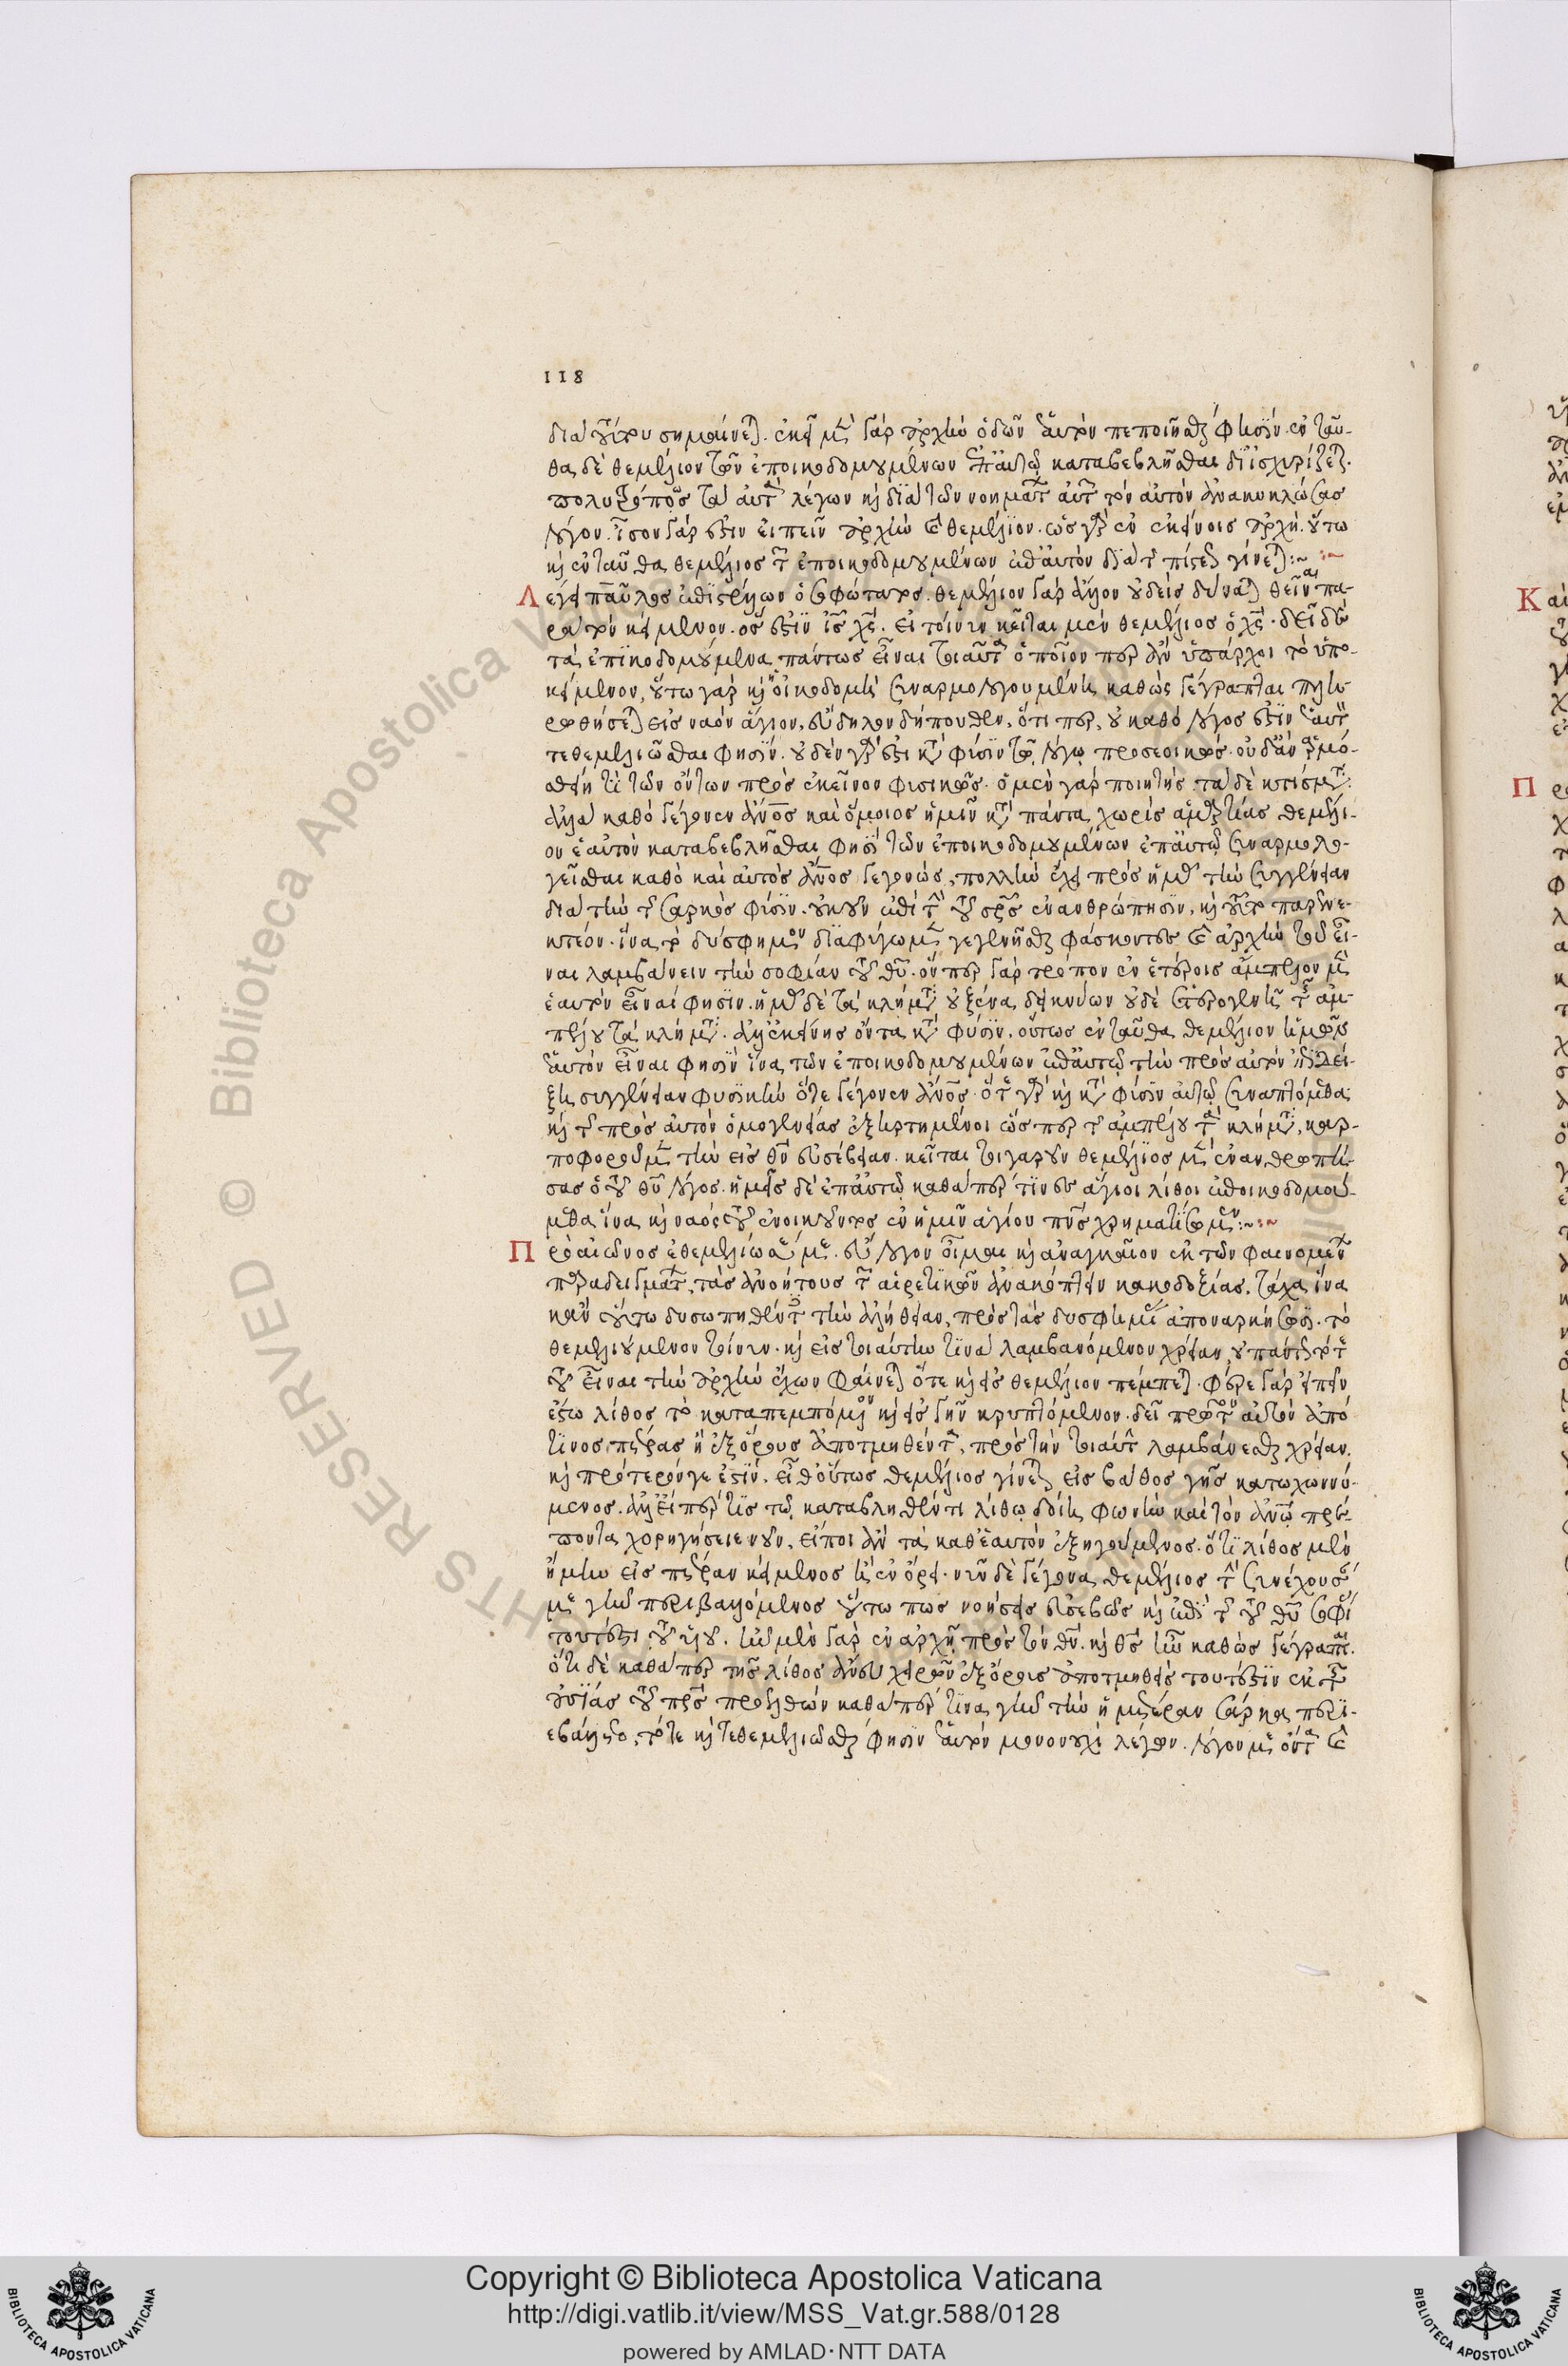 118
διὰ τούτου σημαίνεται. ἐκεῖ μὲν γὰρ ἀρχὴν ὁδῶν ἑαυτὸν πεποιῆσθαι φησίν. ἐνταῦ-
θα δὲ θεμέλιον τῶν ἐποικοδομουμένων ἐπ' αὐτῷ καταβεβλῆσθαι διϊσχυρίζεται.
πολυτρόπως τὰ αὐτὰ λέγων κ διὰ τῶν νοημάτων αὐτῶν τὸν αὐτὸν ἀνακυκλώσας
λόγον. ἴσον γάρ ἐστιν εἰπεῖν ἀρχὴν καὶ θεμέλιον. ὡς γὰρ ἐν ἐκείνοις ἀρχὴ. οὕτω
κ ἐνταῦθα θεμέλιος τῶν ἐποικοδομουμένων ἐπ' αὐτὸν διὰ τῆς πίστεως γίνεται:~
Λέγει παῦλος ἐπιστέλλων ὁ σοφώτατος. θεμέλιον γὰρ ἄλλον οὐδεὶς δύναται θεῖναι πα-
ρὰ τὸν κείμενον. ὅς ἐστιν ις χς. εἰ τοίνυν κεῖται μὲν θεμέλιος ὁ χς. δεῖ δὲ
τὰ ἐποικοδομούμενα πάντως εἶναι τοιαῦτα ὁποῖον περ ἂν ὑπάρχοι τὸ ὑπο-
κείμενον, οὕτω γὰρ κ ἡ οἰκοδομὴ συναρμολογουμένη καθὼς γέγραπται πλη-
ρωθήσεται εἰς ναὸν ἅγιον, εὔδηλον δήπουθεν, ὅτι περ, οὐ καθὸ λόγος ἐστὶν ἑαυτὸν
τεθεμελιῶσθαι φησίν. οὐδὲν γάρ ἐστι κατὰ φύσιν τῷ λόγῳ προσεοικός. οὐδ' ἂν ἁρμό-
σθῃ τι τῶν ὄντων πρὸς ἐκεῖνον φυσικῶς. ὁ μὲν γὰρ ποιητής. τὰ δὲ κτίσματα.
ἀλλὰ καθὸ γέγονεν ανος καὶ ὅμοιος ἡμῖν κατὰ πάντα χωρὶς ἁμαρτίας. θεμέλι-
ον ἑαυτὸν καταβεβλῆσθαι φησὶ τῶν ἐποικοδομουμένων ἐπ' αὐτῷ συναρμολο-
γεῖσθαι καθὸ καὶ αὐτὸς ανος γεγονὼς, πολλὴν ἔχει πρὸς ἡμᾶς τὴν συγγένειαν
διὰ τὴν τῆς σαρκὸς φύσιν. οὐκοῦν ἐπὶ τὴν τοῦ σρς ἐνανθρώπησιν, κ τοῦτο παρενε-
κτέον. ἵνα τὸ δύσφημον διαφύγωμεν γεγενῆσθαι φάσκοντες καὶ ἀρχὴν τοῦ εἶ-
ναι λαμβάνειν τὴν σοφίαν τοῦ θυ. ὅνπερ γὰρ τρόπον ἐν ἑτέροις ἄμπελον μὲν
ἑαυτὸν εἶναί φησιν. ἡμᾶς δὲ τὰ κλήματα οὐ ξένα δεικνύων οὐδὲ ἑτερογενῆ τῆς ἀμ-
πέλου τὰ κλήματα. ἀλλ' ἐκείνης ὄντα κατὰ φύσιν. οὕτως ἐνταῦθα θεμέλιον ἡμῶν
ἑαυτὸν εἶναι φησὶν ἵνα τῶν ἐποικοδομουμένων ἐπ' αὐτῷ τὴν πρὸς αὐτὸν ἐπιδεί-
ξῃ συγγένειαν φυσικὴν ὅτε γέγονεν ανος. ὅτε γὰρ κ κατὰ φύσιν αὐτῷ συναπτόμεθα
κ τῆς πρὸς αὐτὸν ὁμογενείας ἐξηρτημένοι ὥσπερ τῆς ἀμπέλου τὰ κλήματα, καρ-
ποφοροῦμεν τὴν εἰς θν εὐσέβειαν. κεῖται τοιγαροῦν θεμέλιος μὲν ἐνανθρωπή-
σας ὁ τοῦ θυ λόγος. ἡμεῖς δὲ ἐπ' αὐτῷ καθάπερ τινὲς ἅγιοι λίθοι ἐποικοδομού-
μεθα ἵνα κ ναὸς τοῦ ἐνοικοῦντος ἐν ἡμῖν ἁγίου πνς χρηματίσωμεν:~
Πρὸ αἰῶνος ἐθεμελίωσέ με. εὔλογον οἶμαι κ ἀναγκαῖον ἐκ τῶν φαινομένων
παραδειγμάτων, τὰς ἀνοήτους τῶν αἱρετικῶν ἀνακόπτειν κακοδοξίας. τάχα ἵνα
κἂν οὕτω δυσωπηθέντες τὴν ἀλήθειαν, πρὸς τὰς δυσφημίας ἀποναρκήσωσι. τὸ
θεμελιούμενον τοίνυν. κ εἰς τοιαύτην τινὰ λαμβανόμενον χρείαν οὐ πάντως τότε
τοῦ εἶναι τὴν ἀρχὴν ἔχων φαίνεται ὅτε κ εἰς θεμέλιον πέμπεται. φέρε γὰρ εἰπεῖν
ἔστω λίθος τὸ καταπεμπόμενον κ εἰς γῆν κρυπτόμενον. δεῖ πρῶτον αὐτὸν ἀπό
τινος πέτρας ἢ ἐξ ὄρους ἀποτμηθέντα, πρὸς τὴν τοιαύτην λαμβάνεσθαι χρείαν.
κ πρότερόν γε ἐστίν. εἶθ' οὕτως θεμέλιος γίνεται εἰς βάθος γῆς καταχωννύ-
μενος. ἀλλ' εἴπερ τις τῷ καταβληθέντι λίθῳ δοίη φωνὴν καὶ τὸν ανω πρέ-
ποντα χορηγήσειε νοῦν, εἴποι ἂν τὰ καθ' ἑαυτὸν ἐξηγούμενος. ὅτι λίθος μὲν
ἤμην εἰς πέτραν κείμενος ἢ ἐν ὄρει. νῦν δὲ γέγονα θεμέλιος τῆς συνεχούσης
με γῆν περιβαλλόμενος οὕτω πως νοήσεις εὐσεβῶς κ ἐπὶ τῆς τοῦ θυ σοφίας
τουτέστι τοῦ υἱοῦ. ἦν μὲν γὰρ ἐν ἀρχῇ πρὸς τὸν θν. κ θς ἦν καθὼς γέγραπται.
ὅτε δὲ καθάπερ τις λίθος ἄνευ χειρῶν ἐξ ὄρους ἀποτμηθεὶς τουτέστιν ἐκ τῆς
οὐσίας τοῦ πρς προελθὼν καθάπερ τινὰ γῆν τὴν ἡμετέραν σάρκα περι-
εβάλλετο, τότε κ τεθεμελιῶσθαι φησὶν ἑαυτὸν μονονουχὶ λέγων. λόγον με ὄντα καὶ
Copyright © Biblioteca Apostolica Vaticana
http://digi.vatlib.it/view/MSS_Vat.gr.588/0128
powered by AMLAD·NTT DATA